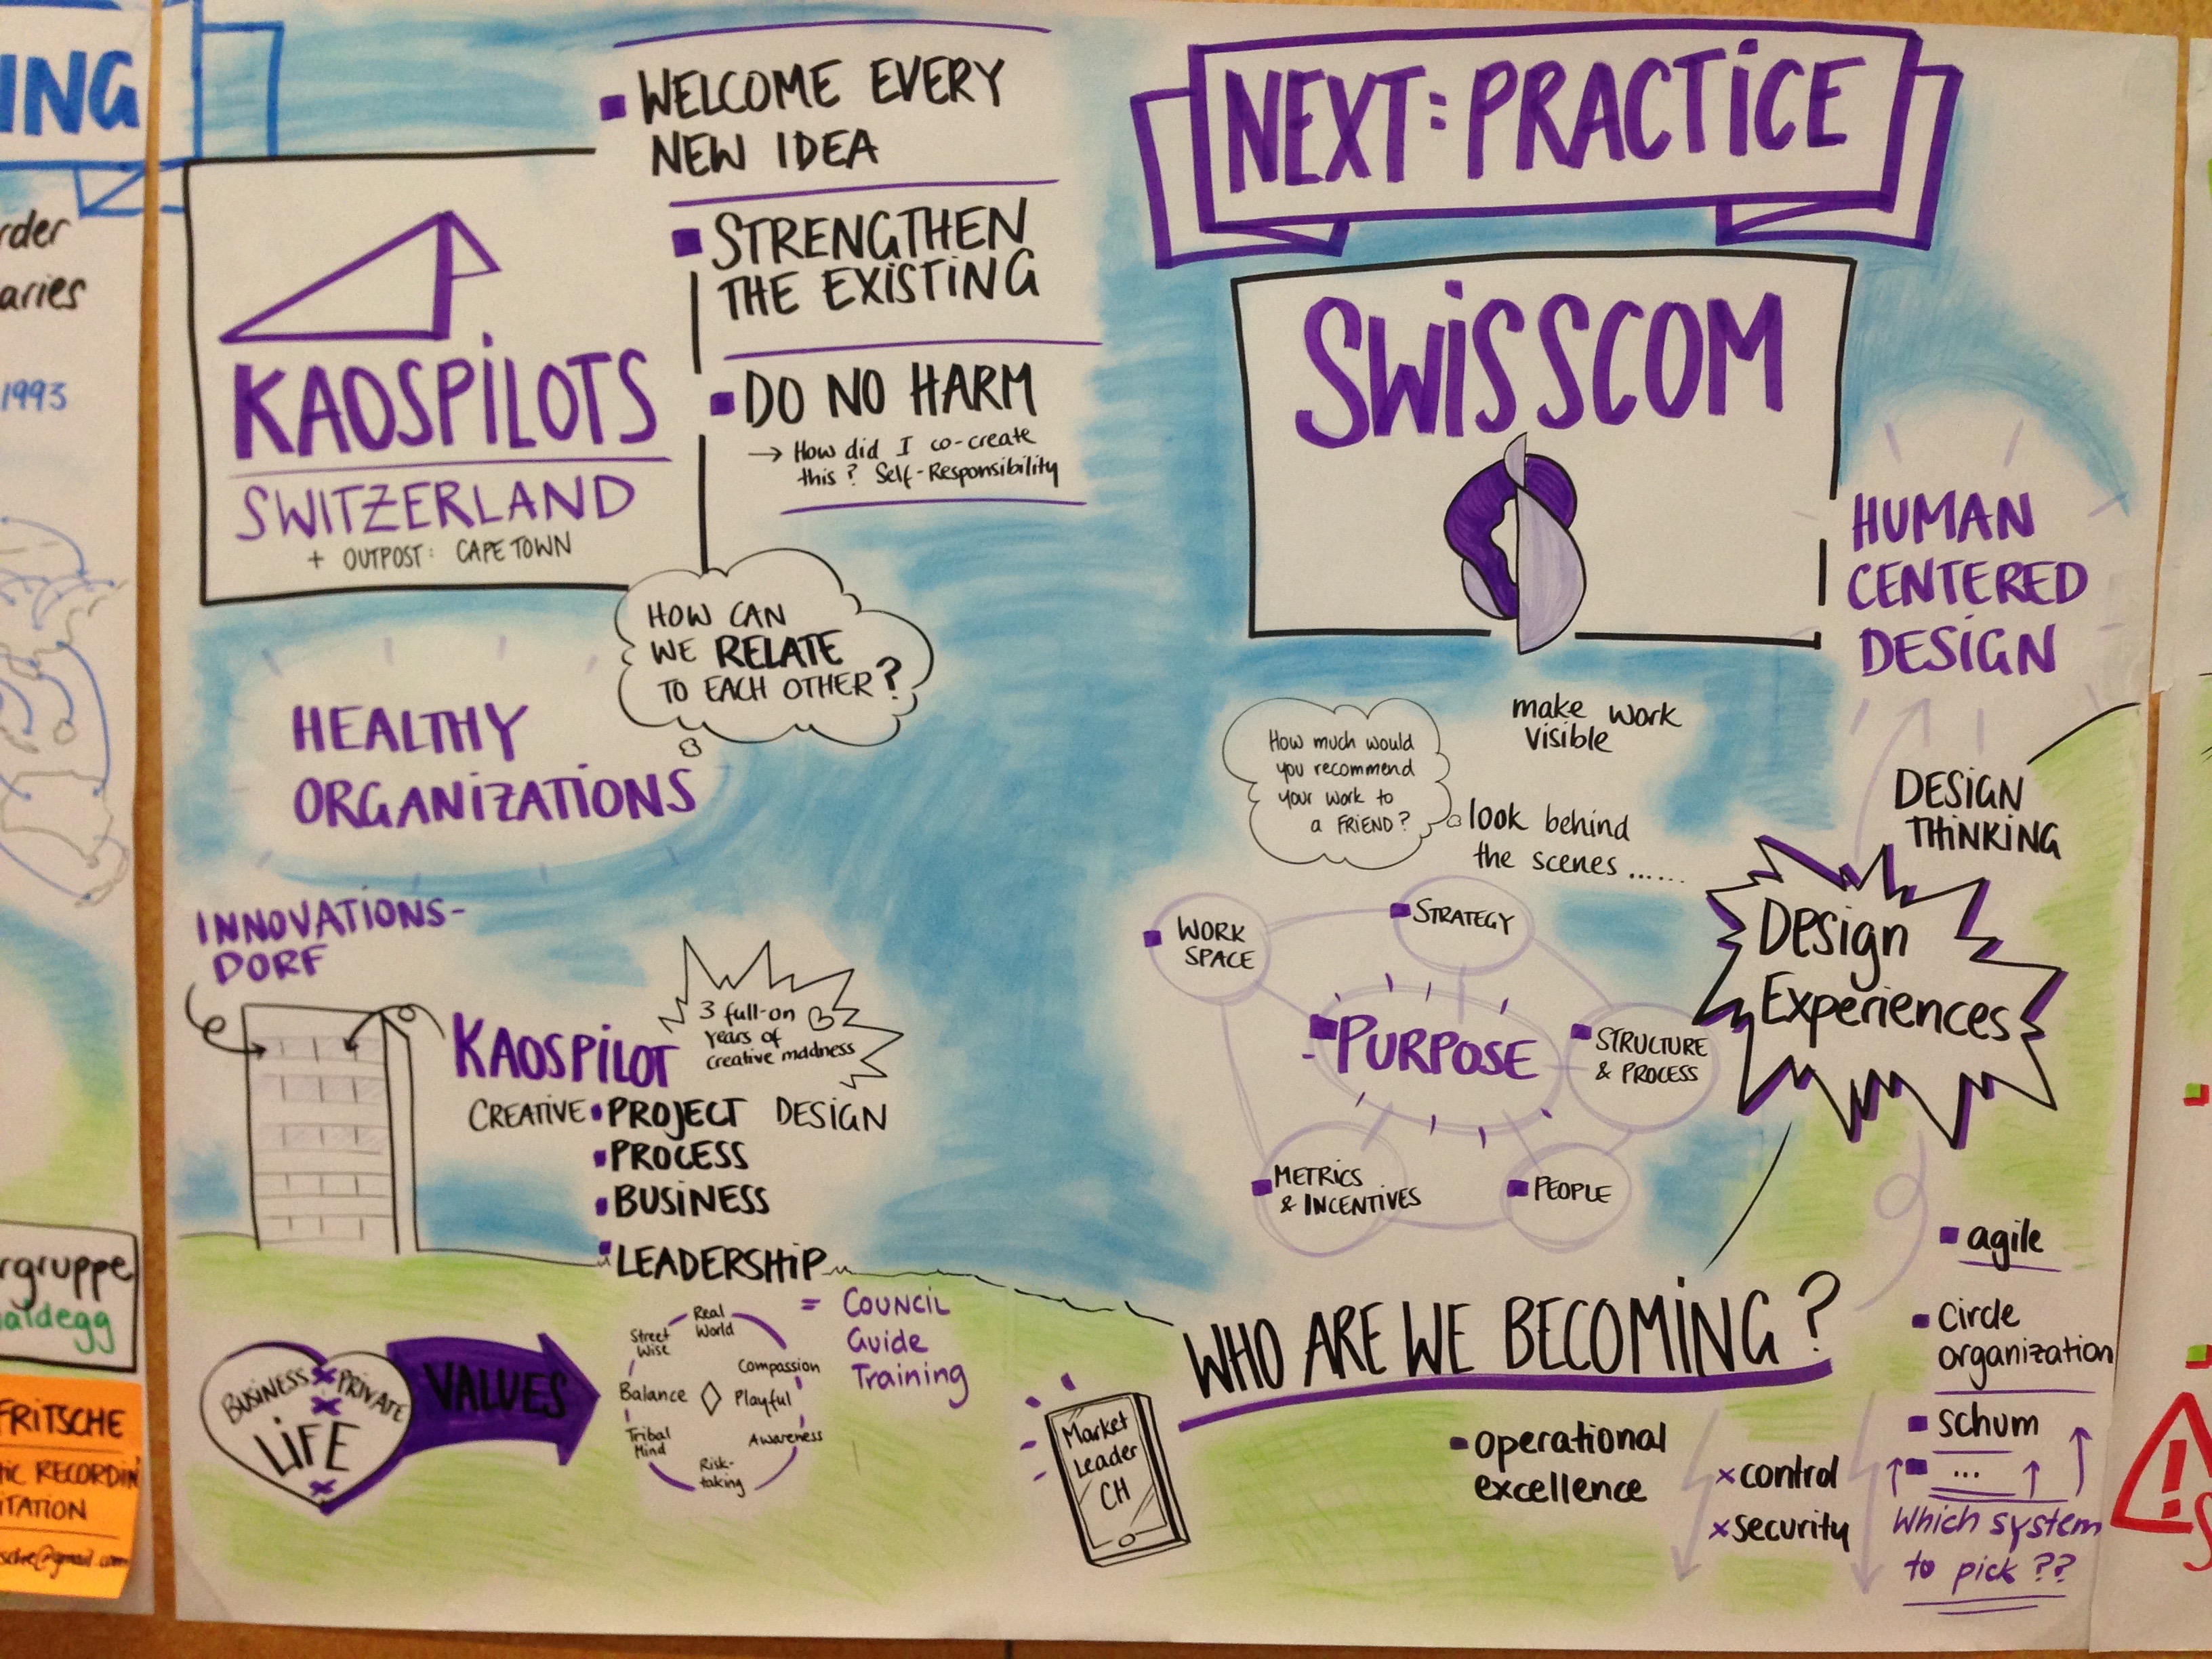 ING
rder
aries
1993
rgruppe
aldegg
FRITSCHE
IC RECORDIN
ITATION
sche@gmail.com
WELCOME EVERY
NEW IDEA
STRENGTHEN
THE EXISTING
DO NO HARM
→ How did I co-create
this? Self-Responsibility
KAOSPILOTS
SWITZERLAND
+ OUTPOST: CAPE TOWN
HOW CAN
WE RELATE
TO EACH OTHER?
HEALTHY
ORGANIZATIONS
INNOVATIONS-
DORF
KAOSPILOT
3 full-on
years of
creative madness
CREATIVE PROJECT DESIGN
PROCESS
BUSINESS
LEADERSHIP
= COUNCIL
Guide
Training
BUSINESS × PRIVATE
LIFE
VALUES
Real
World
Street
Wise
Compassion
Balance
Playful
Tribal
Mind
Awareness
Risk-
taking
NEXT: PRACTICE
SWISSCOM
HUMAN
CENTERED
DESIGN
make work
visible
How much would
you recommend
your work to
a FRIEND?
look behind
the scenes ......
DESIGN
THINKING
Design
Experiences
WORK
SPACE
STRATEGY
PURPOSE
STRUCTURE
& PROCESS
METRICS
& INCENTIVES
PEOPLE
WHO ARE WE BECOMING?
Market
Leader
CH
operational
excellence
× control
× security
agile
Circle
organization
schum
...
Which system
to pick ??